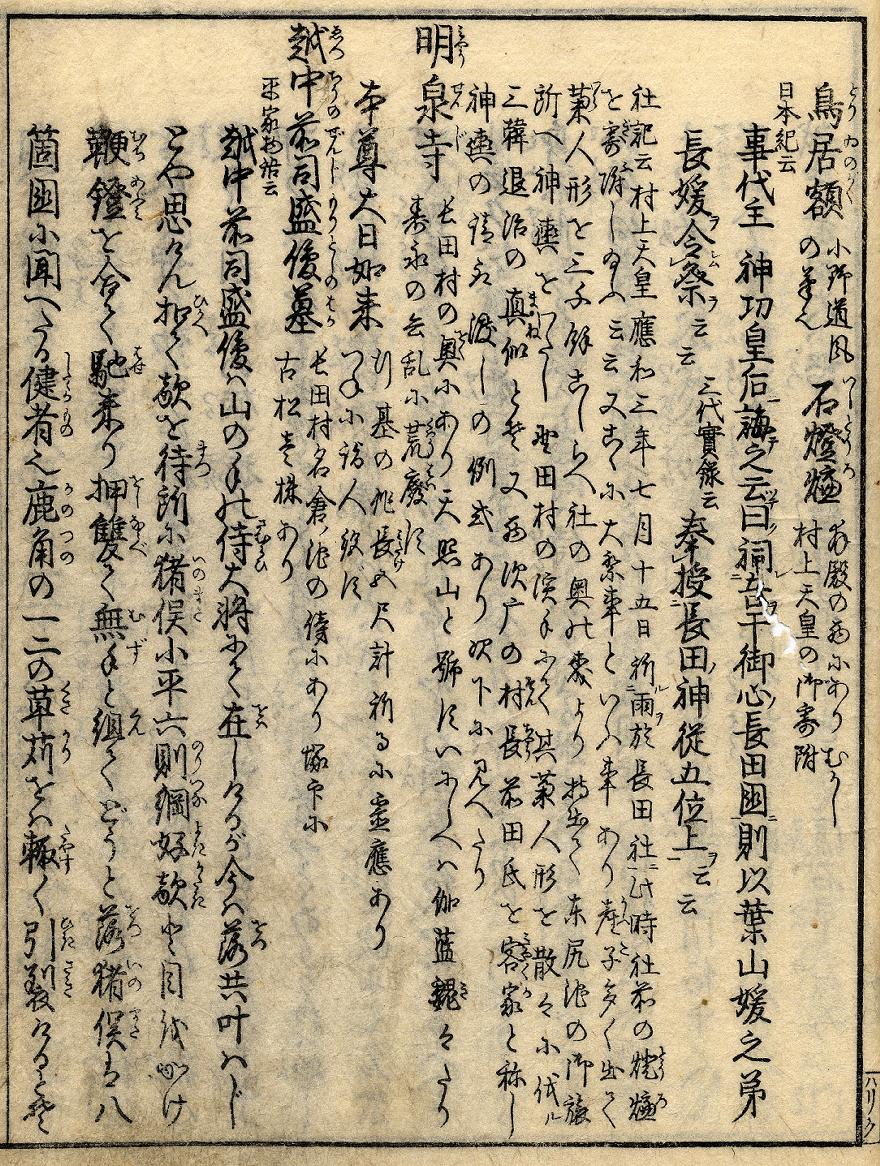 鳥居額 小野道風の筆也 石燈爐 拝殿の前にあり むかし村上天皇の御寄附
日本紀云
事代主 神功皇后誨之云曰祠吾于御心長田國則以葉山媛之弟
長媛令祭云云 三代實録云 奉授長田神従五位上云云
社記云村上天皇應和三年七月十五日祈雨於長田社此時社前の燈爐
を寄附し給ふ云云又こゝに大祭事といふ事あり産子多く出て
藁人形を三千餘こしらへ社の奥の森より持出て東尻池の御旅
所へ神輿をわたし野田村の濱手にて其藁人形を散々に伐ル
三韓退治の真似とぞ又西須广の村長前田氏を客家と称し
神輿の請取渡しの例式あり次下に見へたり
明泉寺 長田村の奥にあり天照山と號すいにしへハ伽藍巍々たり
壽永の兵乱に荒廢す
本尊大日如来 行基の作長五尺計祈るに霊應あり
つねに詣人絞す
越中前司盛俊墓 長田村名倉池の傍にあり塚印に
古松壱株あり
平家物語云
越中前司盛俊ハ山の手の侍大将にて在しけるが今ハ落共叶ハじ
とや思けん扣て敵を待所に猪俣小平六則綱好敵と目を掛け
鞭鐙を合せて馳来り押雙て無手と組てどうと落猪俣ハ八
箇國に聞へたる健者也鹿角の一二の草苅をハ輙く引裂けるとぞ
ハリク